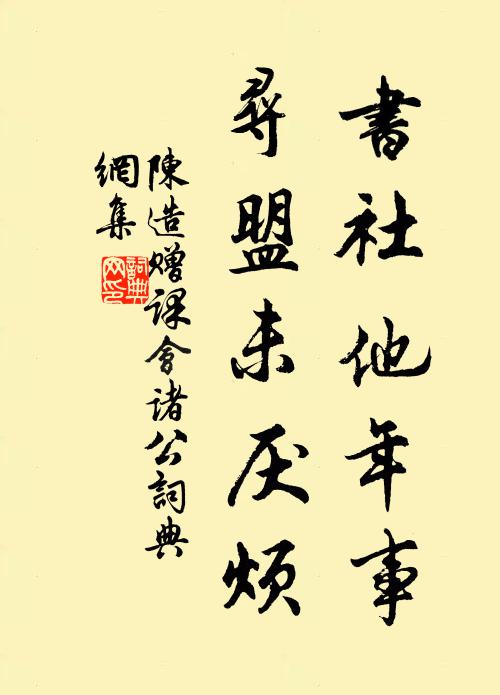 書社他年事
尋盟未厌煩
陳造贈课會诸公詞典
網集
詞典
网印